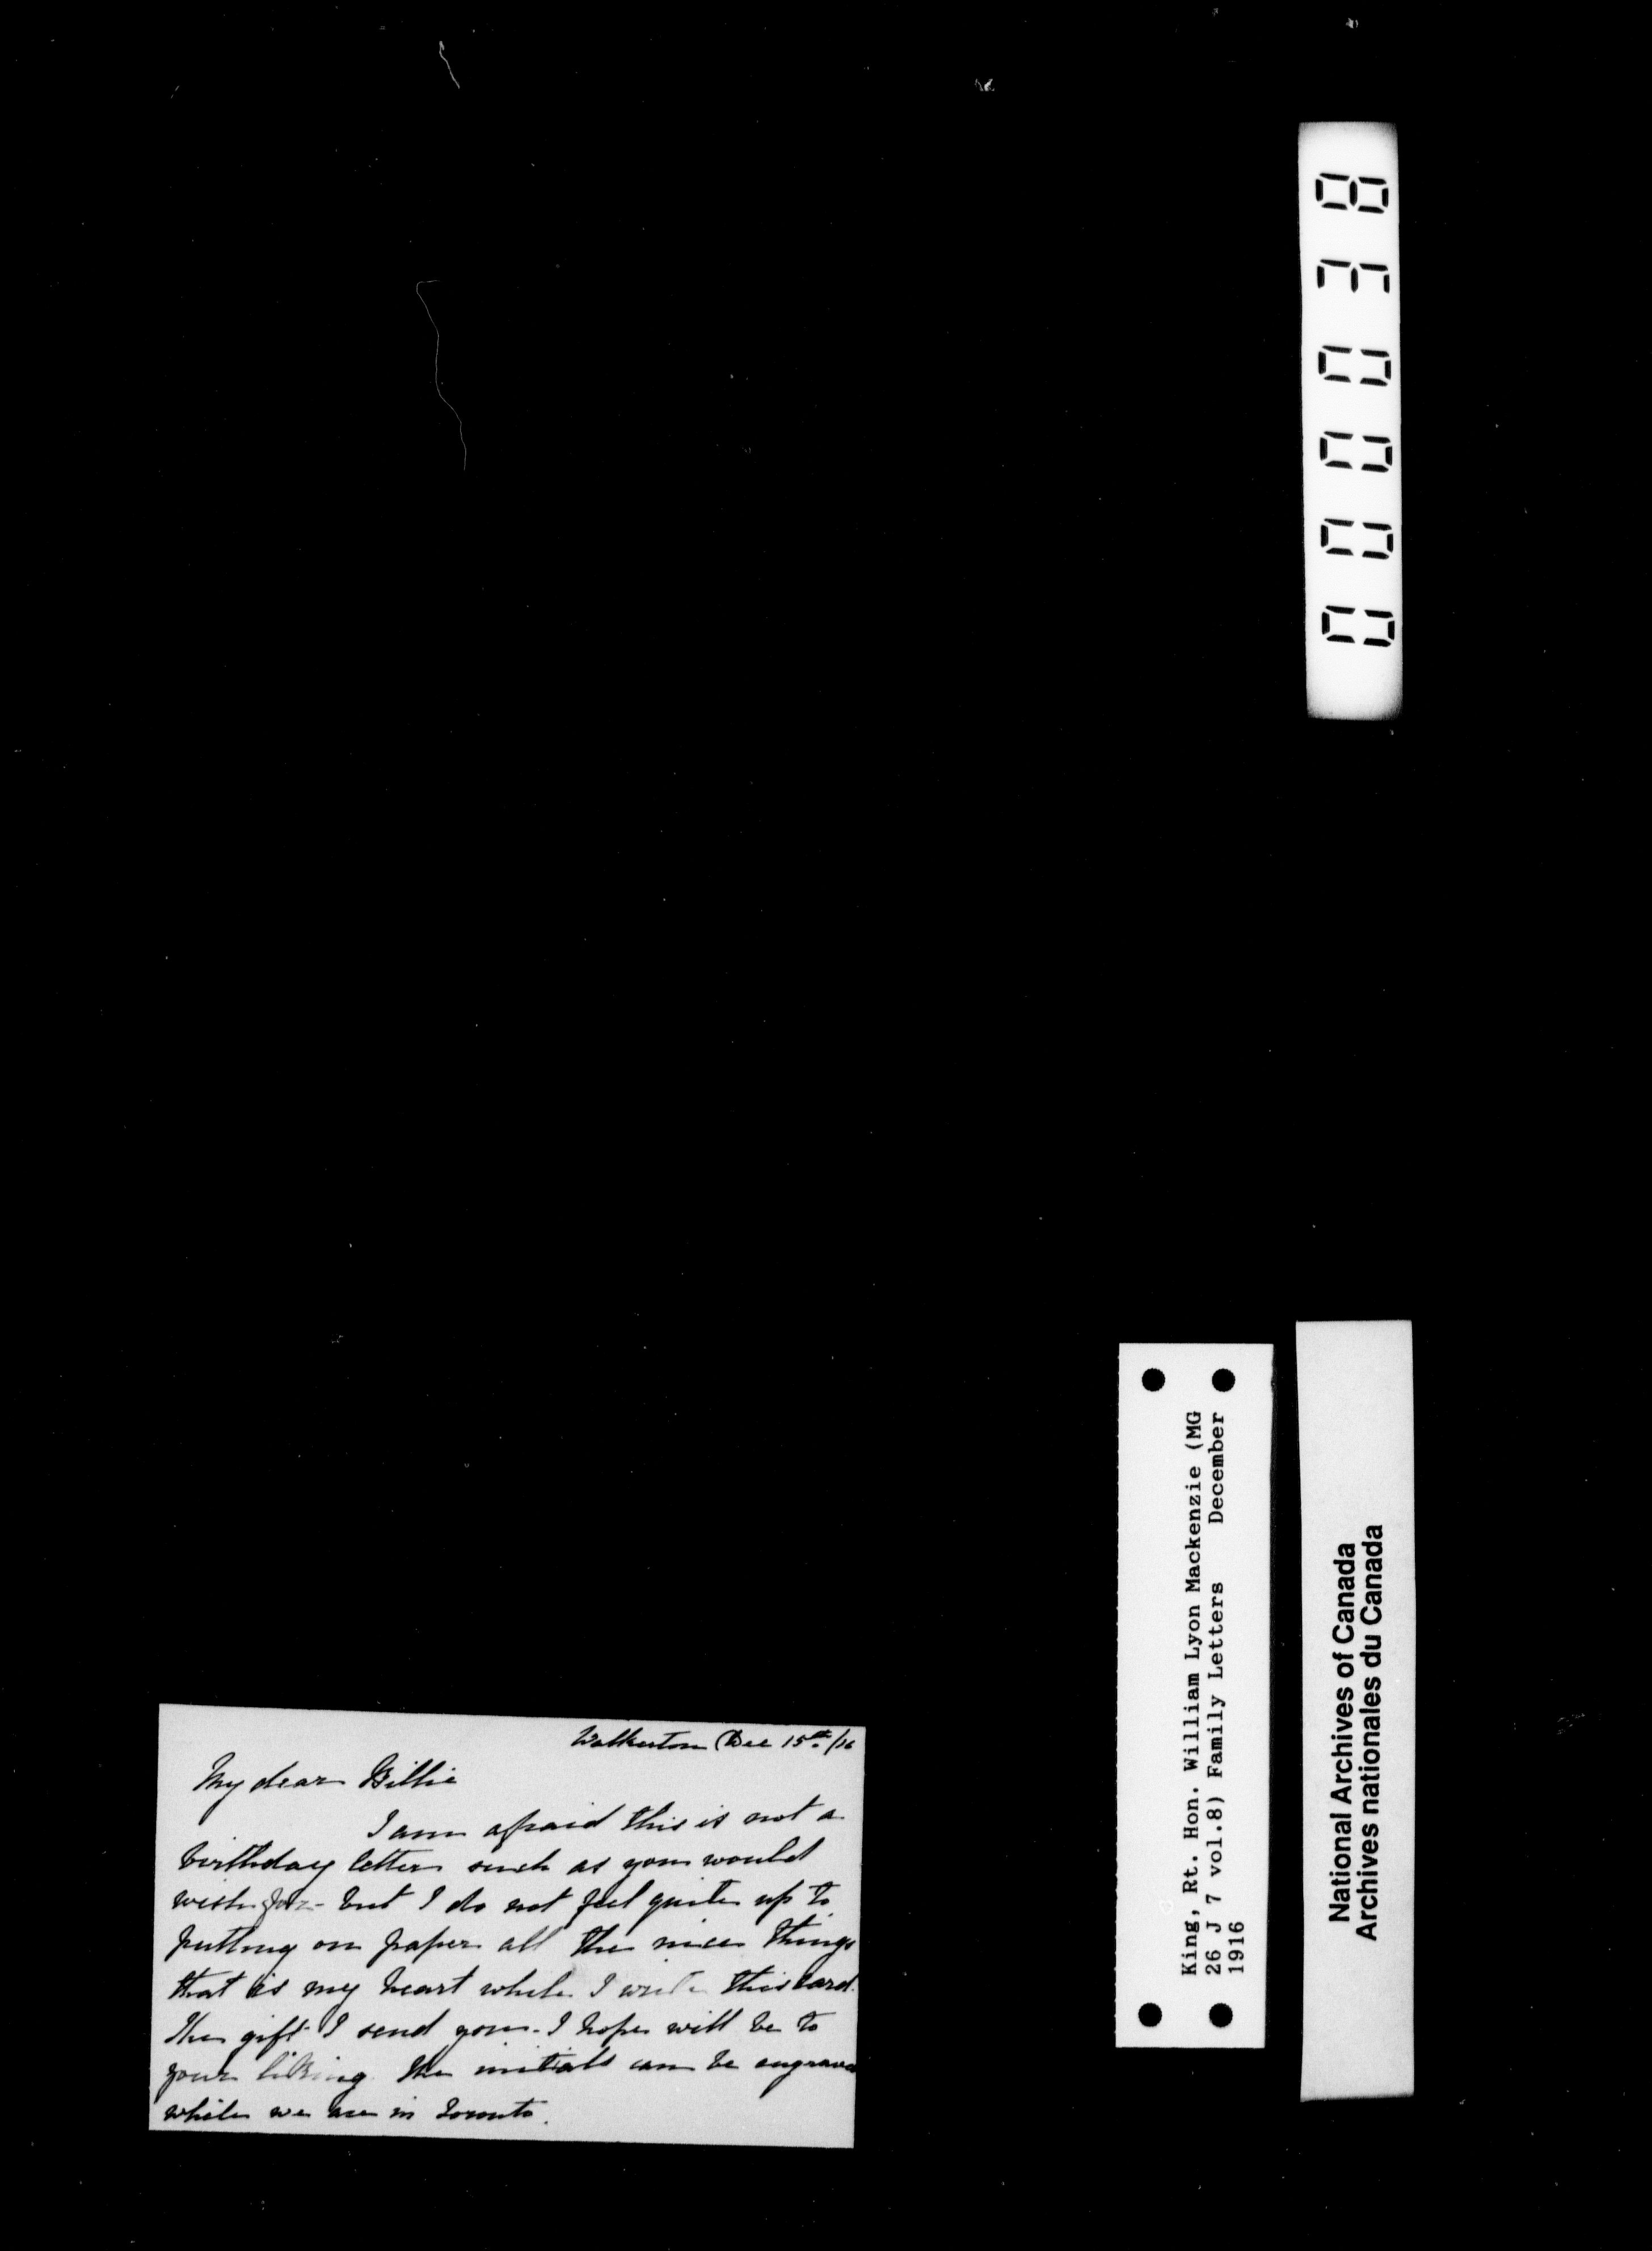 Walkerton Dec 15th/16
My dear Billie
I am afraid this is not a
birthday letter such as you would
wish for - but I do not feel quite up to
putting on paper all the nice things
that is my heart while I write this card.
The gift I send you - I hope will be to
your liking. The initials can be engraved
while we are in Toronto.
King, Rt. Hon. William Lyon Mackenzie (MG
26 J 7 vol.8) Family Letters December
1916
National Archives of Canada
Archives nationales du Canada
000038